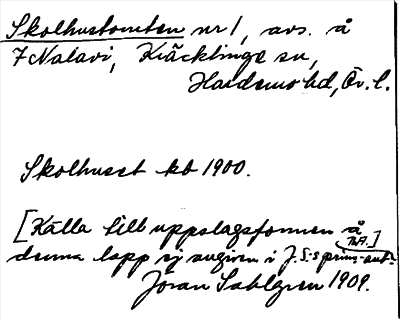 Skolhustomten nr 1, avs. å
7 Nalavi, Kräcklinge sn,
Hardemo hd, Ör. l.
Skolhuset kb 1900.
[Källa till uppslagsformen å
denna lapp ej angiven i J. S:s prim.-ant. ThA.]
Jöran Sahlgren 1909.